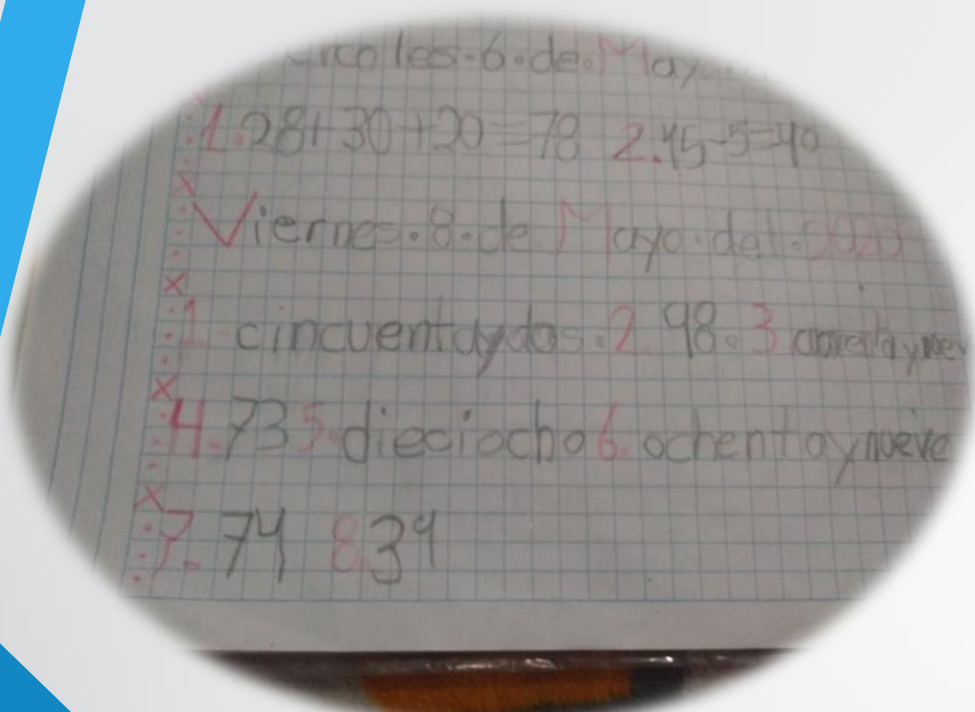 ércoles.6.de.May
1.28+30+20=78 2.45-5=40
Viernes.8.de Mayo.del.2020
1.cincuentaydos.2 98.3
4.73 5.dieciocho 6.ochentaynueve
7. 74 8.34